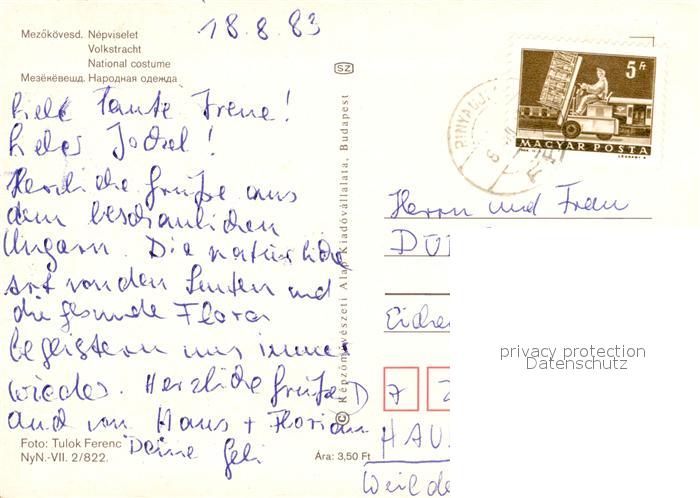 Mezőkövesd. Népviselet
Volkstracht
National costume
Мезёкёвешд. Народная одежда
18.8.83
Liebe Tante Irene!
Liebes Jockel!
Herzliche Grüße aus
dem beschaulichen
Ungarn. Die natürliche
Art von den Leuten und
die gesunde Flora
begeistern uns immer
wieder. Herzliche Grüße
auch von Hans + Florian
Deine Geli
Foto: Tulok Ferenc
NyN.-VII. 2/822.
Ára: 3,50 Ft
© Képzőművészeti Alap Kiadóvállalata, Budapest
SZ
5 Ft
MAGYAR POSTA
Herrn und Frau
DÜ
Eiche
D 7 2
HAU
Weil de
privacy protection
Datenschutz